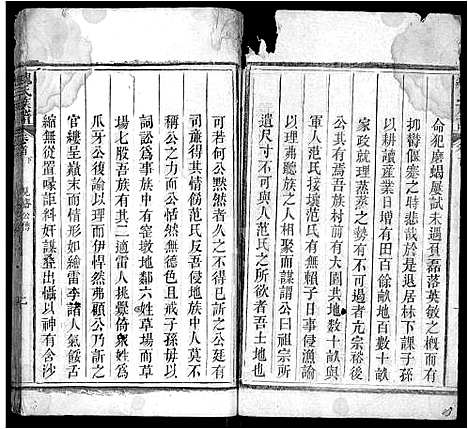 命犯磨蝎屢試未遇有磊落英敏之概而有
抑鬱偃蹇之時悲哉於是退居林下課子孫
以耕讀產業日增有田百餘畝地百數十畝
家政蒸蒸之勢不可過者尤宗裕後
公其有焉吾族村前有大園共地數十畝與
軍人范氏接壤范氏有無賴子日事侵漁諭
以理弗聽族之人相聚而謀謂公曰祖宗所
遺尺寸不可與人范氏之所欲者吾土地也
可若何公黙然者久之不得已訴之公廷有
司廉得其情飭范氏反吾侵地族中人莫不
稱公之力而公恬然無德色且戒子孫毋以
詞訟爲事族有宗墩地鄰六姓草場而草
場七股吾族有其二適有人挑釁倚衆姓爲
爪牙公復諭以理而伊悍然弗顧公乃訴之
官縷呈巔末而情形如繪雷李諸人氣餒舌
縮無從置喙詎料奸謀叠出懾以神有含沙
卷首 下